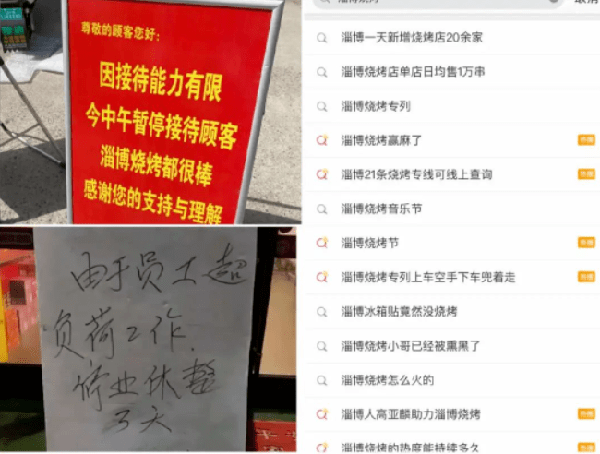 尊敬的顾客您好:
因接待能力有限
今中午暂停接待顾客
淄博烧烤都很棒
感谢您的支持与理解
由于员工超
负荷工作,
停业休整
3天
淄博烧烤
取消
淄博一天新增烧烤店20余家
淄博烧烤店单店日均售1万串
淄博烧烤专列
淄博烧烤赢麻了
淄博21条烧烤专线可线上查询
淄博烧烤音乐节
淄博烧烤节
淄博烧烤专列上车空手下车兜着走
淄博冰箱贴竟然没烧烤
淄博烧烤小哥已经被熏黑了
淄博烧烤怎么火的
淄博人高亚麟助力淄博烧烤
淄博烧烤的热度能持续多久